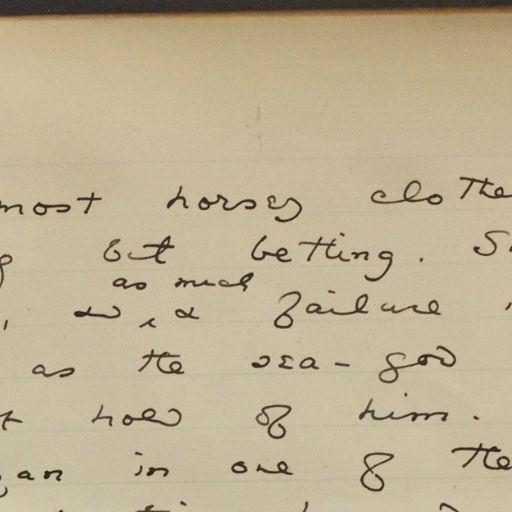 most horsey clothe
but betting. S
as much
, a failure
as the sea-god
t hold of him.
gan in one of the